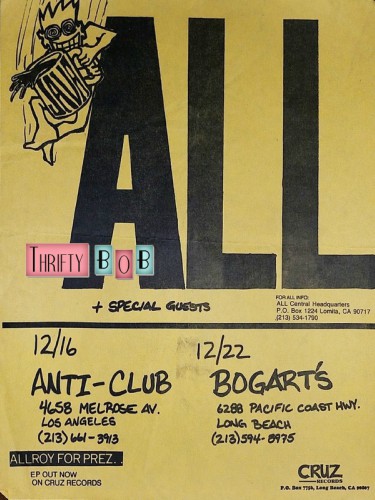 JAVA
ALL
THRIFTY BOB
+ SPECIAL GUESTS
FOR ALL INFO:
ALL Central Headquarters
P.O. Box 1224 Lomita, CA 90717
(213) 534-1790
12/16
ANTI-CLUB
4658 MELROSE AV.
LOS ANGELES
(213) 661-3913
12/22
BOGART'S
6288 PACIFIC COAST HWY.
LONG BEACH
(213) 594-8975
ALLROY FOR PREZ..
EP OUT NOW
ON CRUZ RECORDS
CRUZ
RECORDS
P.O. Box 7756, Long Beach, CA 90807